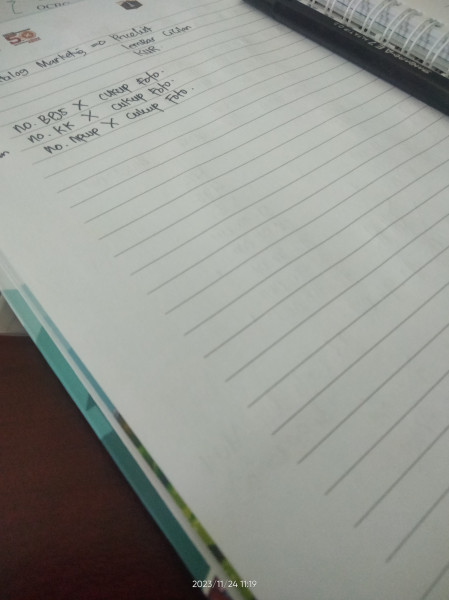 50
Marketing => Pricelist
Lembar Cicilan
KUR
no BPJS X cukup Foto.
no. KK X cukup Foto.
no. NPWP X cukup Foto.
2023/11/24 11:19